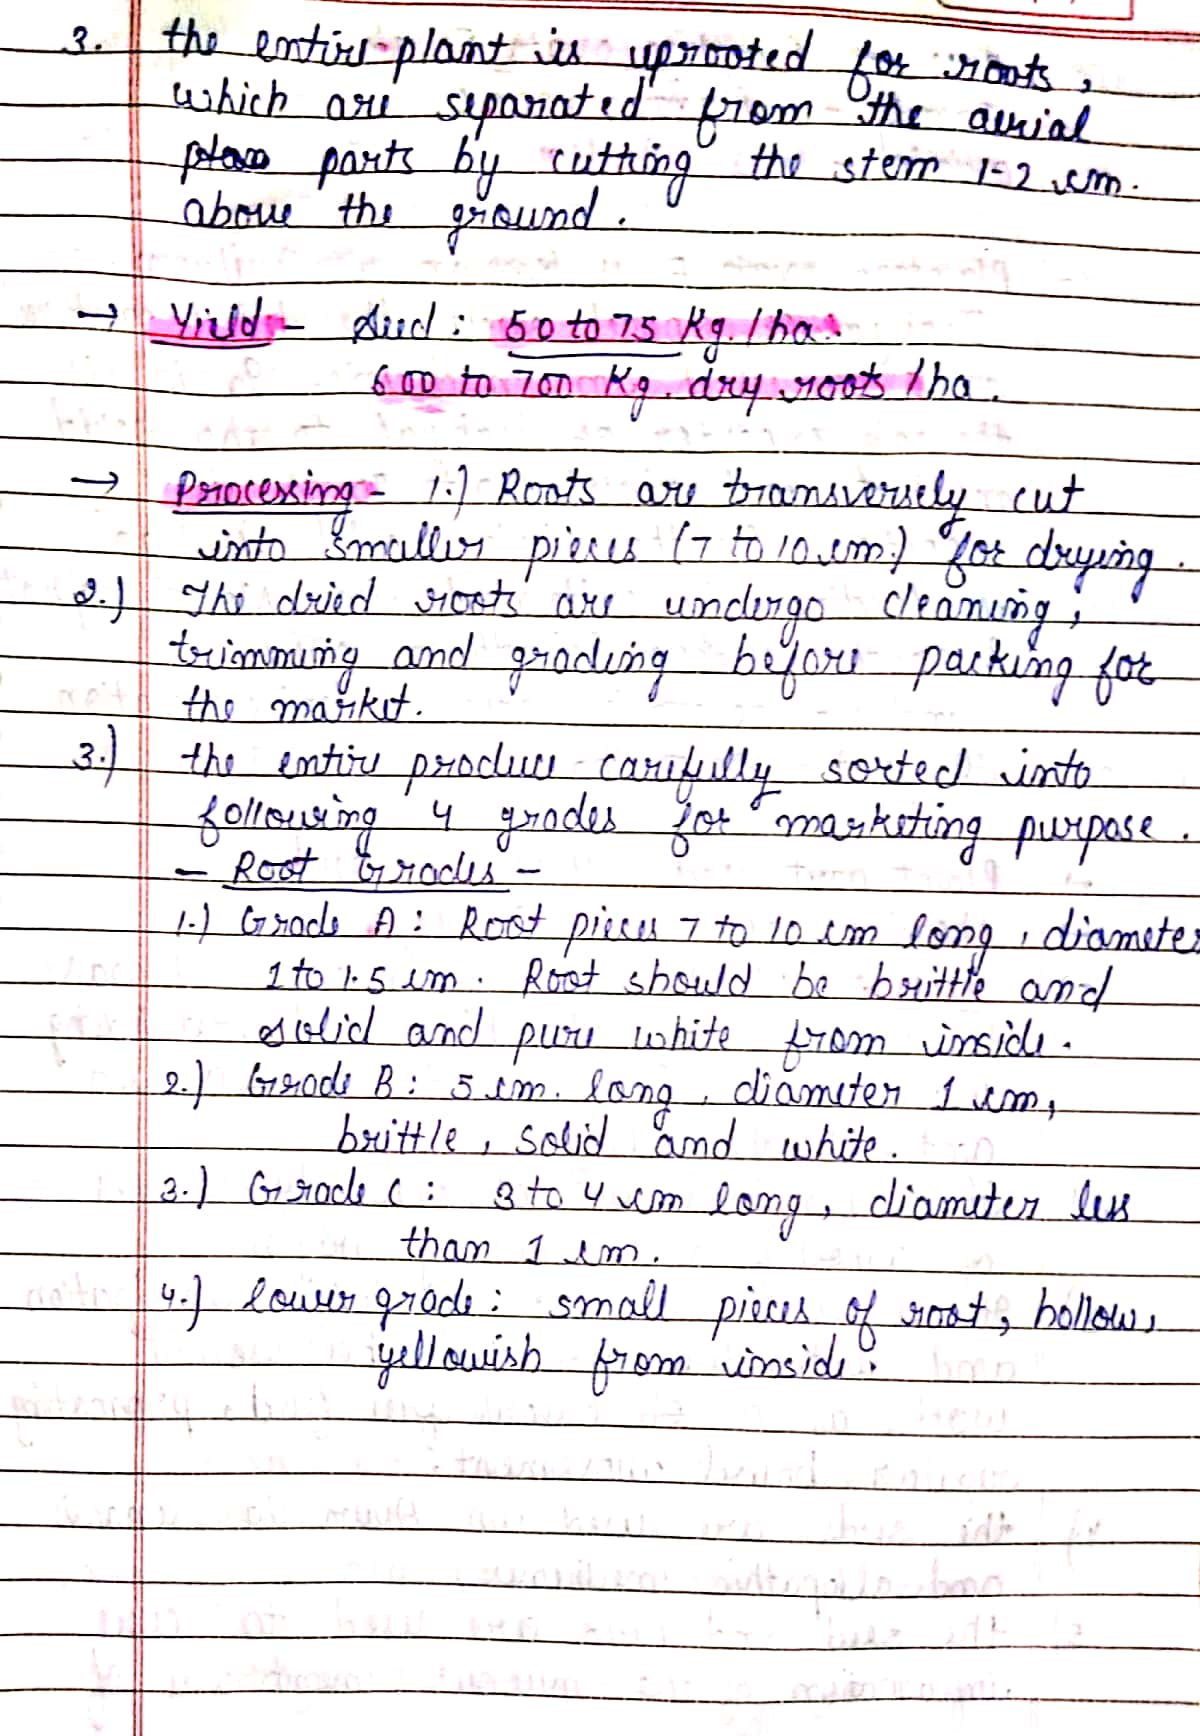 3. the entire plant is uprooted for roots,
which are separated from the aerial
parts by cutting the stem 1-2 cm.
above the ground.
→ Yield - Seed : 50 to 75 Kg. / ha.
600 to 700 Kg. dry roots / ha.
→ Processing - 1.) Roots are transversely cut
into smaller pieces (7 to 10 cm.) for drying.
2.) The dried roots are undergo cleaning,
trimming and grading before packing for
the market.
3.) the entire produce carefully sorted into
following 4 grades for marketing purpose.
- Root Grades -
1.) Grade A : Root pieces 7 to 10 cm long, diameter
1 to 1.5 cm. Root should be brittle and
solid and pure white from inside.
2.) Grade B : 5 cm. long, diameter 1 cm,
brittle, solid and white.
3.) Grade C : 3 to 4 cm long, diameter less
than 1 cm.
4.) lower grade : small pieces of root, hollow,
yellowish from inside.